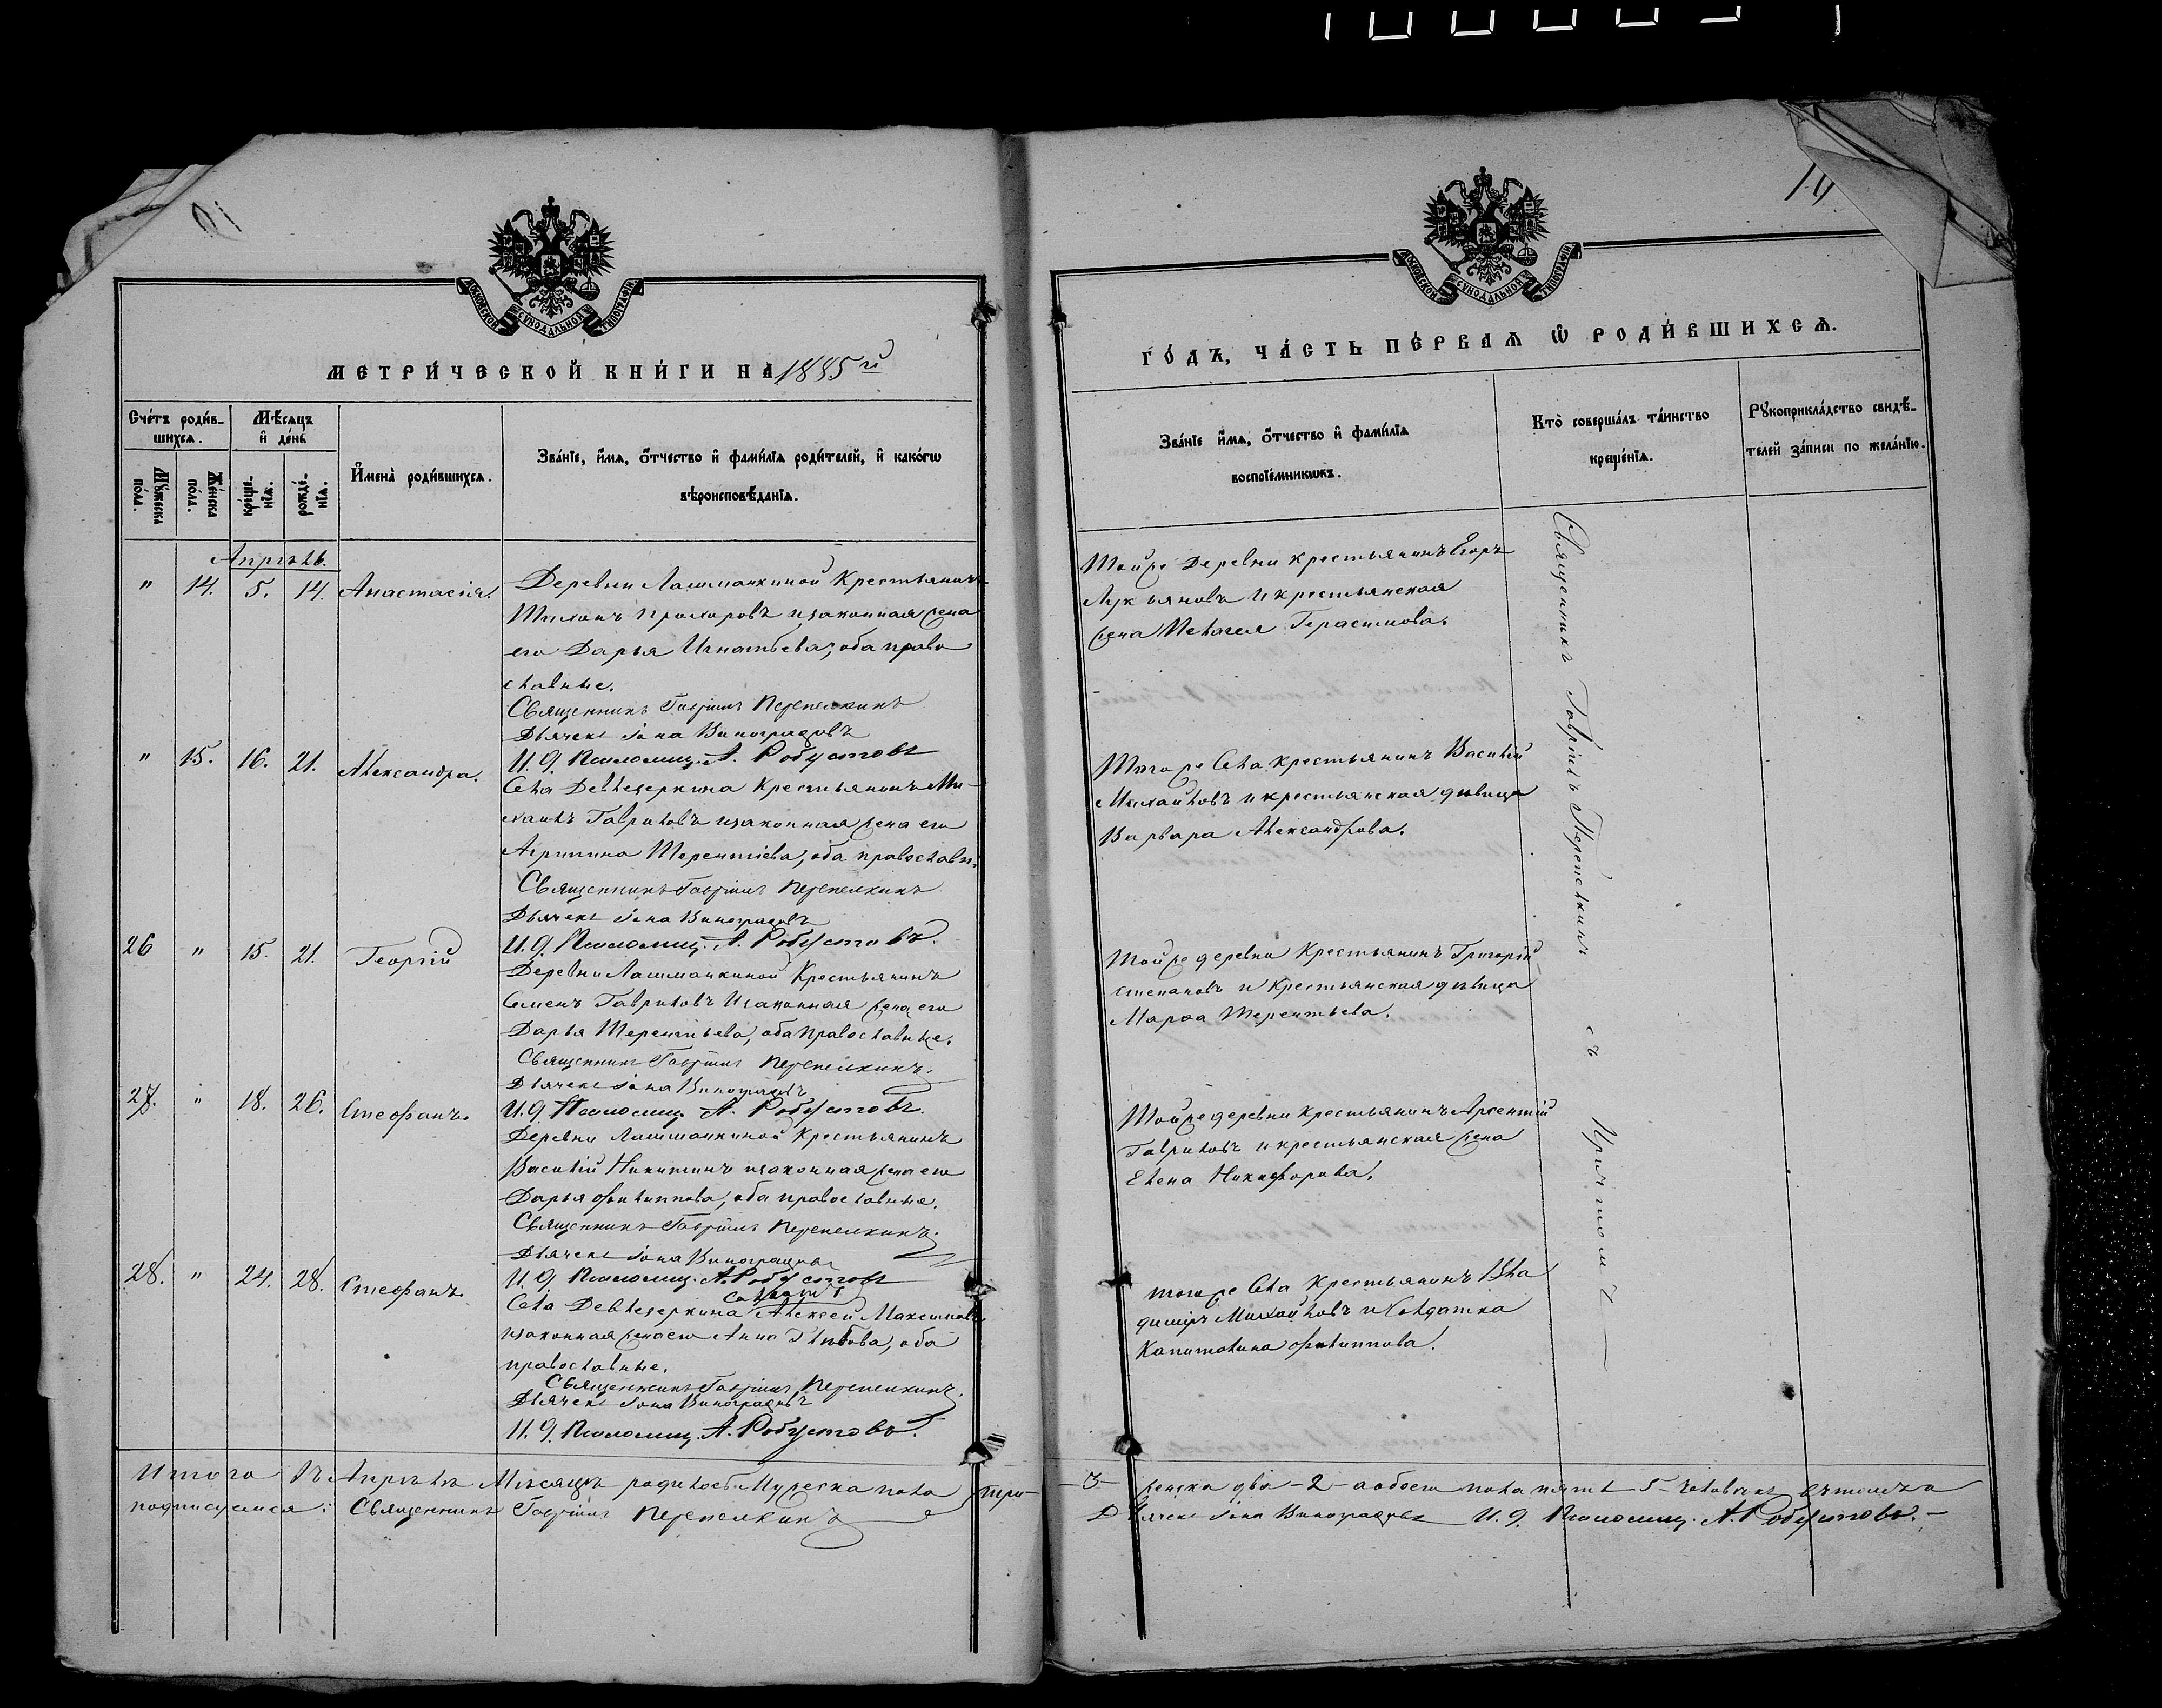 14
МОСКОВСКОЙ СѴНОДАЛЬНОЙ ТИПОГРАФІИ
МОСКОВСКОЙ СѴНОДАЛЬНОЙ ТИПОГРАФІИ
МЕТРИ́ЧЕСКОЙ КНИ́ГИ НА 1885 й
ГО́ДЪ, ЧА́СТЬ ПЕ́РВАѦ Ѿ РОДИ́ВШИХСѦ.
Сче́тъ роди́в-
шихсѧ.
Мѣ́сѧцъ
и҆ де́нь
Мꙋ́жеска по́ла.
Же́нска по́ла.
креще́-нїѧ.
рожде́-нїѧ.
И҆мена̀ роди́вшихсѧ.
Зва́нїе, и҆́мѧ, ѻ҆́тчество и҆ фами́лїѧ роди́телей, и҆ како́гѡ
вѣроисповѣ́данїѧ.
Зва́нїе и҆́мѧ, ѻ҆́тчество и҆ фами́лїѧ
воспрїе́мникѡвъ.
Кто̀ соверша́лъ та́инство
креще́нїѧ.
Рꙋкоприкла́дство свидѣ́-
телей за́писи по жела́нїю.
Апрѣль.
" 14. 5. 14. Анастасія.
Деревни Лашманкиной Крестьянинъ
Тихонъ Прохоровъ и законная жена
его Дарья Игнатьева, оба право
славные.
Священникъ Гавріилъ Перепелкинъ
Дьячекъ Іона Виноградовъ
И. д. Псаломщ. А. Робустовъ
Тойже Деревни крестьянинъ Егоръ
Лукьяновъ и крестьянская
жена Пелагея Герасимова.
" 15. 16. 21. Александра.
Села Девлезеркина Крестьянинъ Ми-
хаилъ Гавриловъ и законная жена его
Агрипина Терентіева, оба православн.
Священникъ Гавріилъ Перепелкинъ
Дьячекъ Іона Виноградовъ
И. д. Псаломщ. А. Робустовъ.
Тогоже Села Крестьянинъ Василій
Михайловъ и крестьянская дѣвица
Варвара Александрова.
26 " 15. 21. Георгій
Деревни Лашманкиной Крестьянинъ
Семенъ Гавриловъ и законная жена его
Дарья Терентьева, оба Православные.
Священникъ Гавріилъ Перепелкинъ.
Дьячекъ Іона Виноградовъ
И. д. Псаломщ. А. Робустовъ.
Тойже деревни Крестьянинъ Григорій
Степановъ и Крестьянская дѣвица
Марѳа Терентьева.
27. " 18. 26. Стефанъ.
Деревни Лашманкиной Крестьянинъ
Василій Никитинъ и законная жена его
Дарья Филиппова, оба православные.
Священникъ Гавріилъ Перепелкинъ.
Дьячекъ Іона Виноградовъ
И. д. Псаломщ. А. Робустовъ
Тойже деревни Крестьянинъ Арсентій
Гавриловъ и крестьянская жена
Елена Никифорова.
28. " 24. 28. Стефанъ
Села Девлезеркина Алексей Максимовъ
и законная жена его Анна Глѣбова, оба
православные.
Священникъ Гавріилъ Перепелкинъ.
Дьячекъ Іона Виноградовъ
И. д. Псаломщ. А. Робустовъ.
тогоже Села Крестьянинъ Вла
диміръ Михайловъ и Солдатка
Капитолина Филиппова.
Священникъ Гавріилъ Перепелкинъ съ Причтомъ
Итого въ Апрѣлѣ Мѣсяцѣ родилось Мужеска пола три- -3- женска два -2- а обоего пола пять 5- человѣкъ въ томъ и
подписуемся: Священникъ Гавріилъ Перепелкинъ Дьячекъ Іона Виноградовъ И. д. Псаломщ. А. Робустовъ.